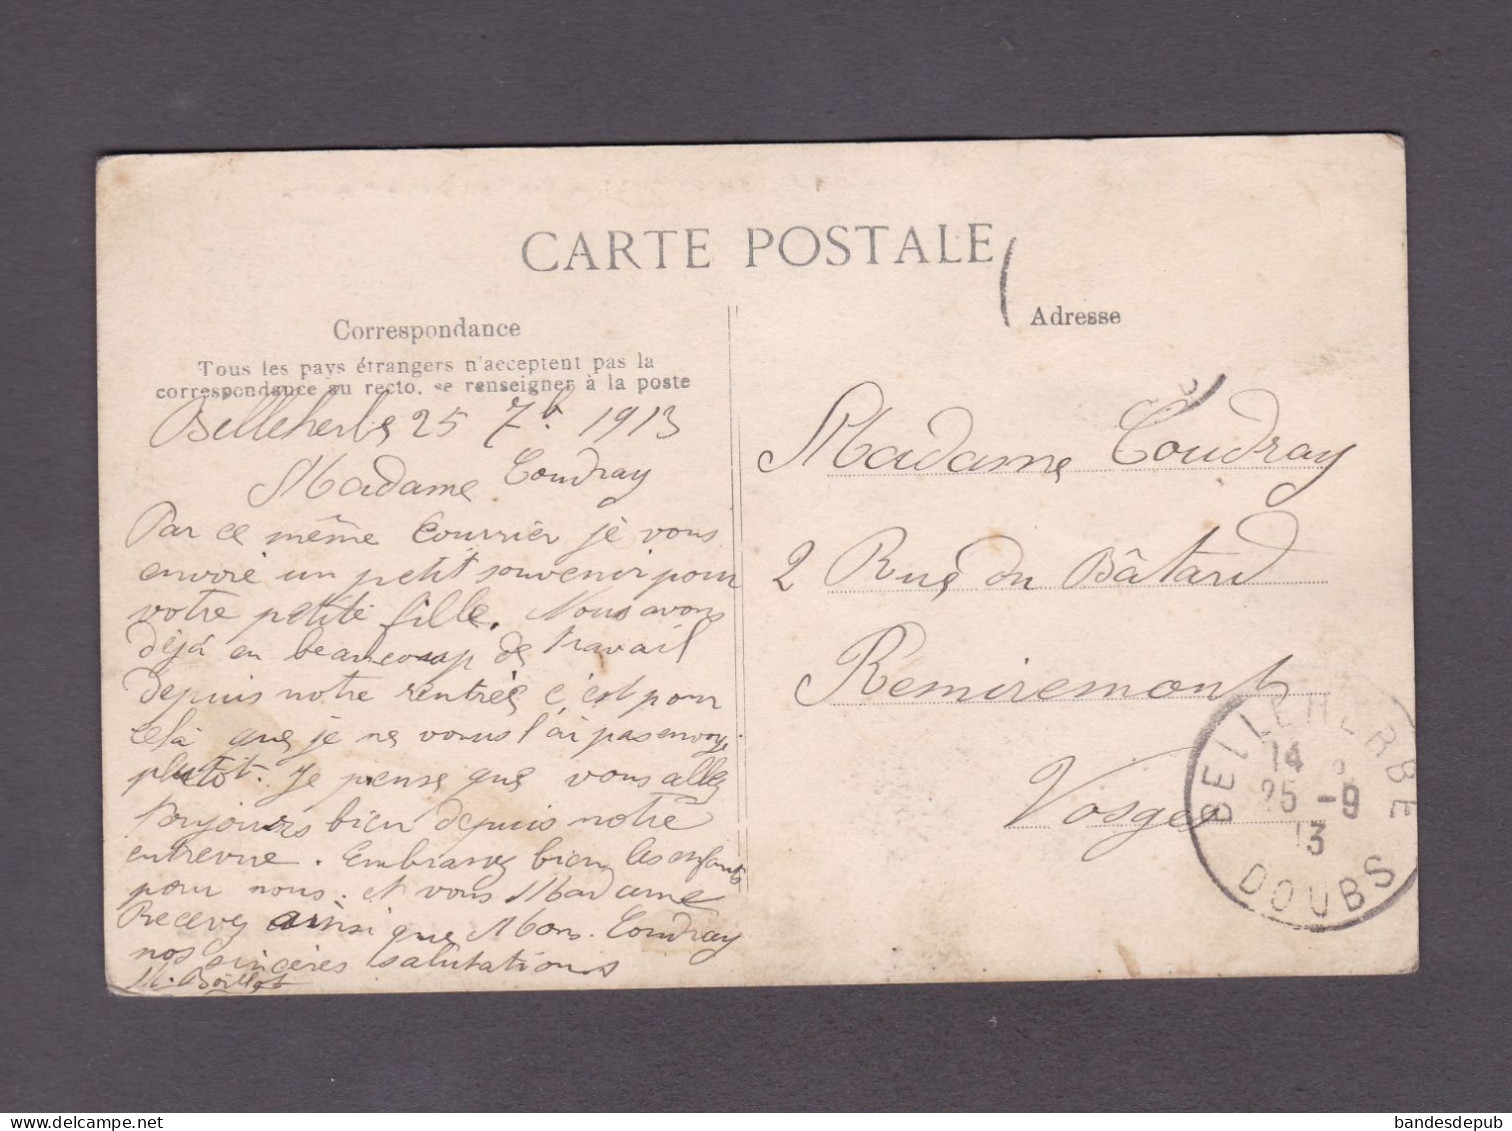 CARTE POSTALE
Correspondance
Tous les pays étrangers n'acceptent pas la
correspondance au recto. se renseigner à la poste
Belleherbe 25 7b. 1913
Madame Coudray
Par ce même courrier je vous
envoie un petit souvenir pour
votre petite fille. Nous avons
déjà eu beaucoup de travail
depuis notre rentrée c'est pour
celà que je ne vous l'ai pas envoyé
plutôt. Je pense que vous allez
toujours bien depuis notre
entrevue. Embrassez bien les enfants
pour nous. et vous Madame
Recevez ainsi que Mons. Coudray
nos sincères salutations
M. Boillot
Adresse
Madame Coudray
2 Rue du Bâtard
Remiremont
Vosges
BELLEHERBE
14
25 -9
13
DOUBS
bandesdepub